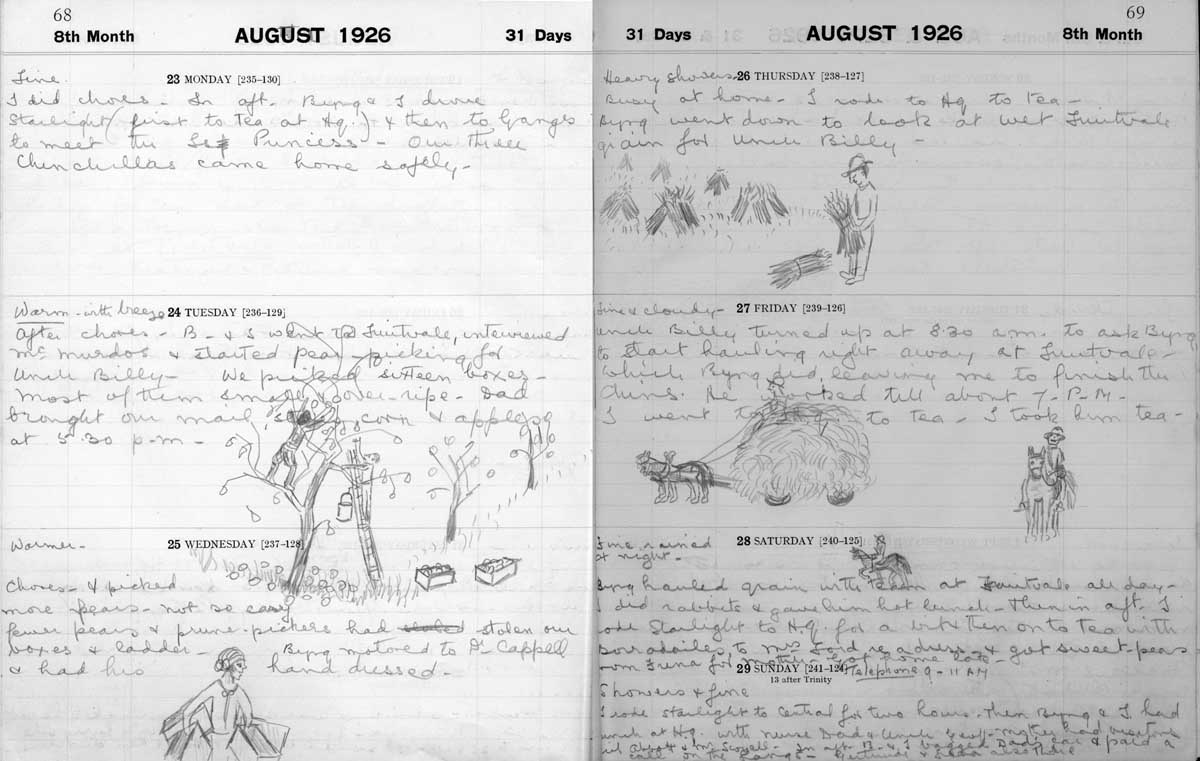 68
8th Month AUGUST 1926 31 Days
Fine. 23 MONDAY [235–130]
I did chores - In aft. Byng & I drove
Starlight (first to tea at Hq.) & then to Ganges
to meet the Princess - Our three
Chinchillas came home safely -
Warm - with breeze 24 TUESDAY [236–129]
After chores - B - & I went to Fruitvale, interviewed
McMurdos & started pear picking for
Uncle Billy - We picked sixteen boxes -
most of them small & over-ripe - Dad
brought our mail corn & apples
at 5.30 p-m -
Warmer - 25 WEDNESDAY [237–128]
Chores - & picked
more pears - not so easy
fewer pears & prune-pickers had stolen our
boxes & ladder - Byng motored to Dr Cappell
& had his hand dressed -
69
31 Days AUGUST 1926 8th Month
Heavy showers - 26 THURSDAY [238–127]
Busy at home - I rode to Hq to tea -
Byng went down to look at wet Fruitvale
grain for Uncle Billy -
Fine & cloudy - 27 FRIDAY [239–126]
Uncle Billy turned up at 8.30 a.m. to ask Byng
to start hauling right away at Fruitvale -
which Byng did, leaving me to finish the
Chins. He worked till about 7 - P-M -
I went to to tea - I took him tea -
Fine, rained 28 SATURDAY [240–125]
at night -
Byng hauled grain with team at Fruitvale all day -
I did rabbits & gave him hot lunch - Then in aft. I
rode Starlight to Hq. for a bit & then on to tea with
Borradailes to Mrs dress & got sweet-peas
from home late -
29 SUNDAY [241–124] Telephone 9 - 11 AM
13 after Trinity
Showers & fine
I rode Starlight to Central for two hours. Then Byng & I had
lunch at Hq. with Nurse Dad & Uncle - Mother had visitors
& Mr - In aft. B - & I Dad's car & paid a
call on the - also there